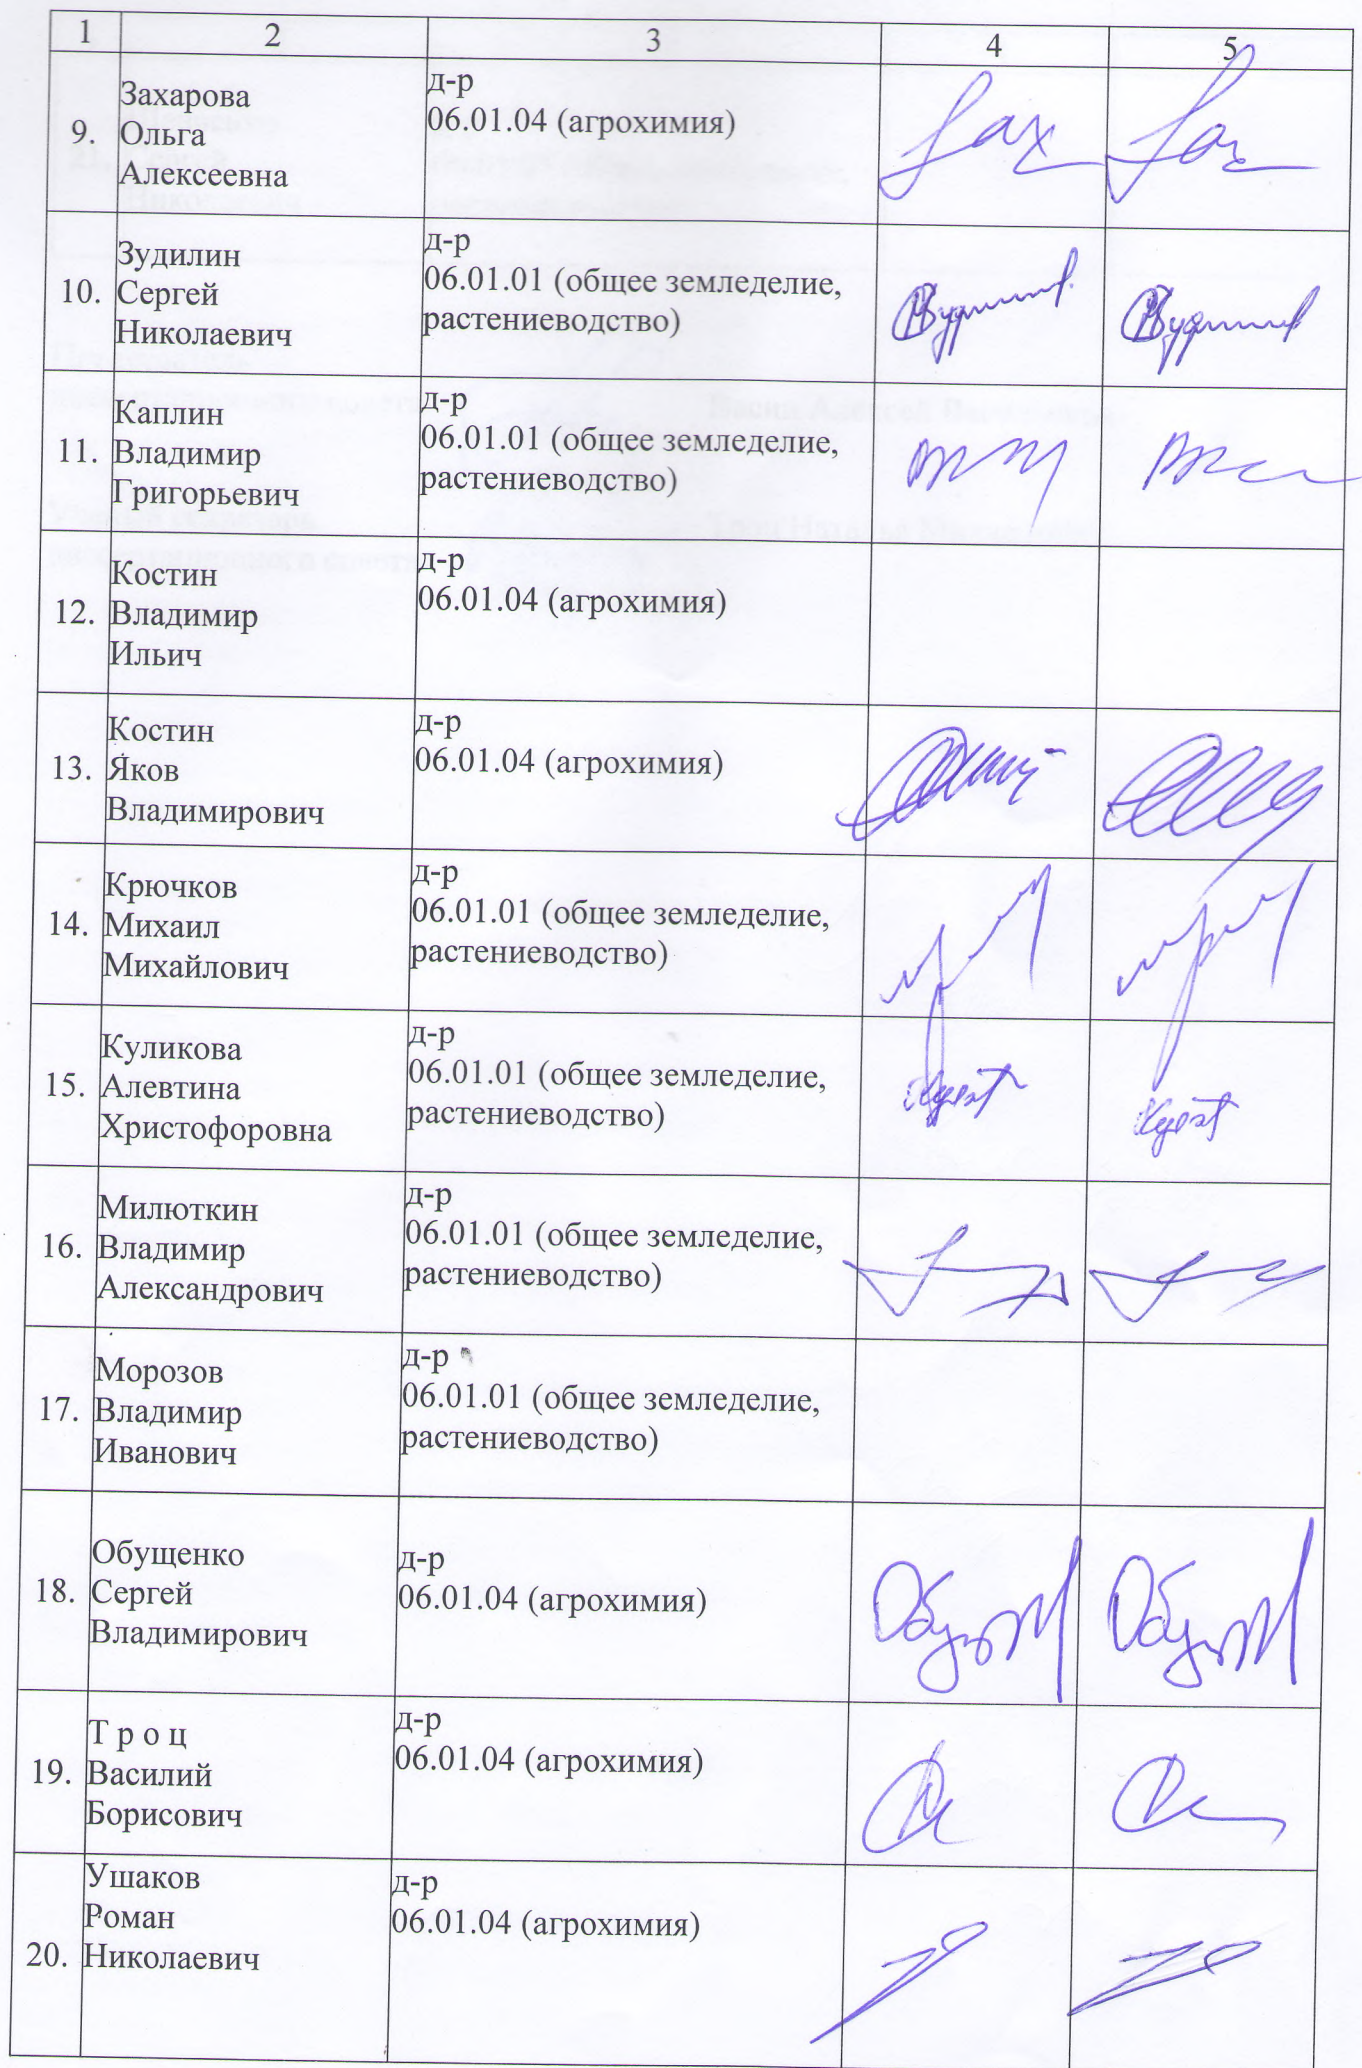 1 2 3 4 5
9. Захарова
Ольга
Алексеевна
д-р
06.01.04 (агрохимия)
10. Зудилин
Сергей
Николаевич
д-р
06.01.01 (общее земледелие,
растениеводство)
11. Каплин
Владимир
Григорьевич
д-р
06.01.01 (общее земледелие,
растениеводство)
12. Костин
Владимир
Ильич
д-р
06.01.04 (агрохимия)
13. Костин
Яков
Владимирович
д-р
06.01.04 (агрохимия)
14. Крючков
Михаил
Михайлович
д-р
06.01.01 (общее земледелие,
растениеводство)
15. Куликова
Алевтина
Христофоровна
д-р
06.01.01 (общее земледелие,
растениеводство)
16. Милюткин
Владимир
Александрович
д-р
06.01.01 (общее земледелие,
растениеводство)
17. Морозов
Владимир
Иванович
д-р
06.01.01 (общее земледелие,
растениеводство)
18. Обущенко
Сергей
Владимирович
д-р
06.01.04 (агрохимия)
19. Т р о ц
Василий
Борисович
д-р
06.01.04 (агрохимия)
20. Ушаков
Роман
Николаевич
д-р
06.01.04 (агрохимия)